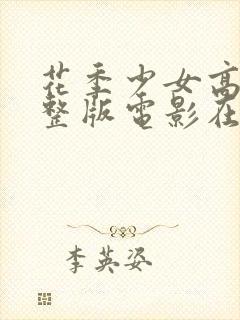 花季少女高
整版电影在
李英姿